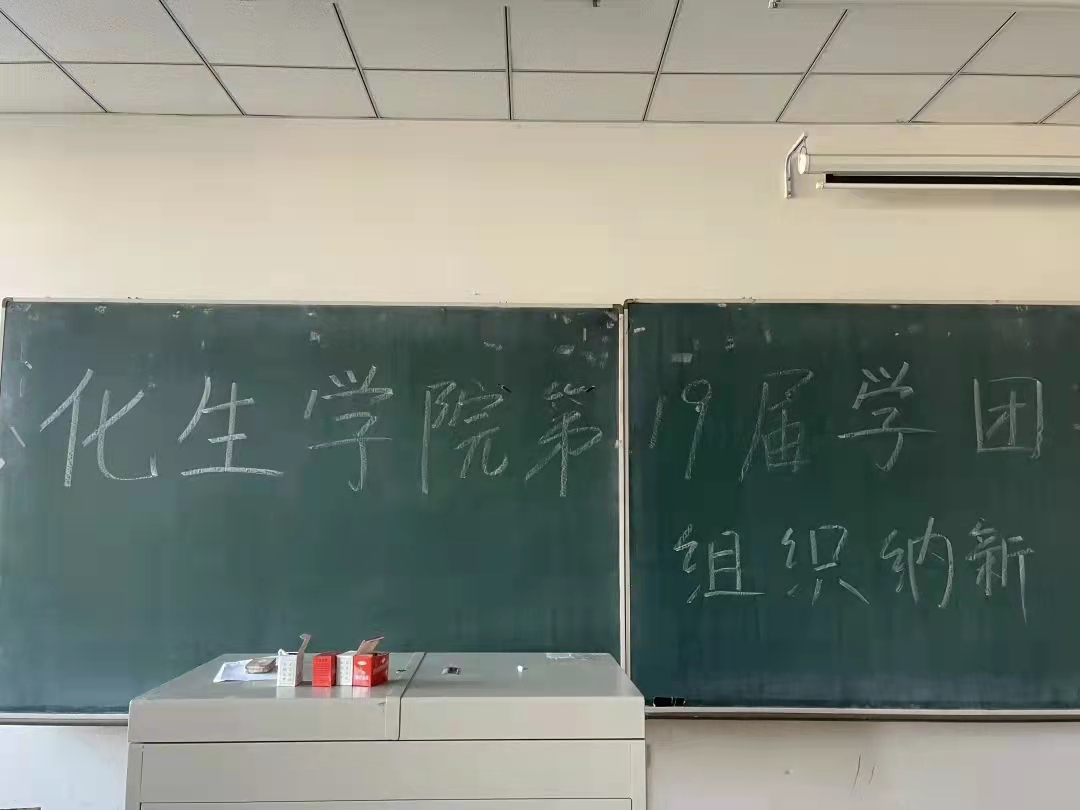 化生学院第19届学团
组织纳新